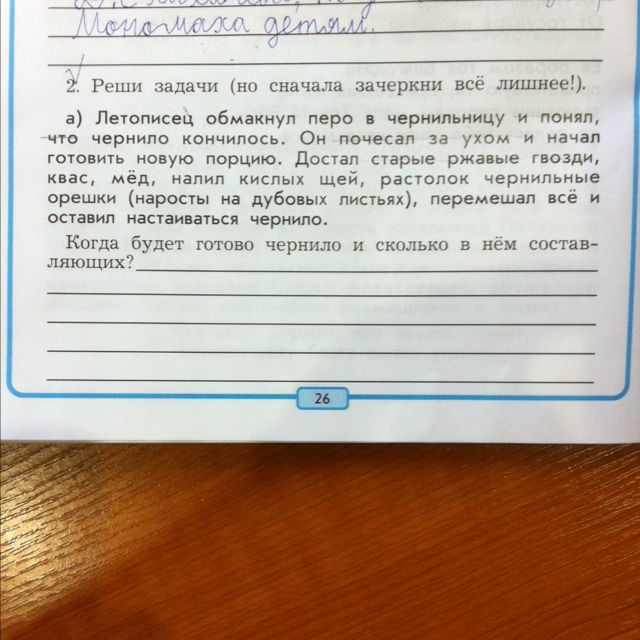 Мономаха детям.
2. Реши задачи (но сначала зачеркни всё лишнее!).
а) Летописец обмакнул перо в чернильницу и понял,
что чернило кончилось. Он почесал за ухом и начал
готовить новую порцию. Достал старые ржавые гвозди,
квас, мёд, налил кислых щей, растолок чернильные
орешки (наросты на дубовых листьях), перемешал всё и
оставил настаиваться чернило.
Когда будет готово чернило и сколько в нём состав-
ляющих?
26